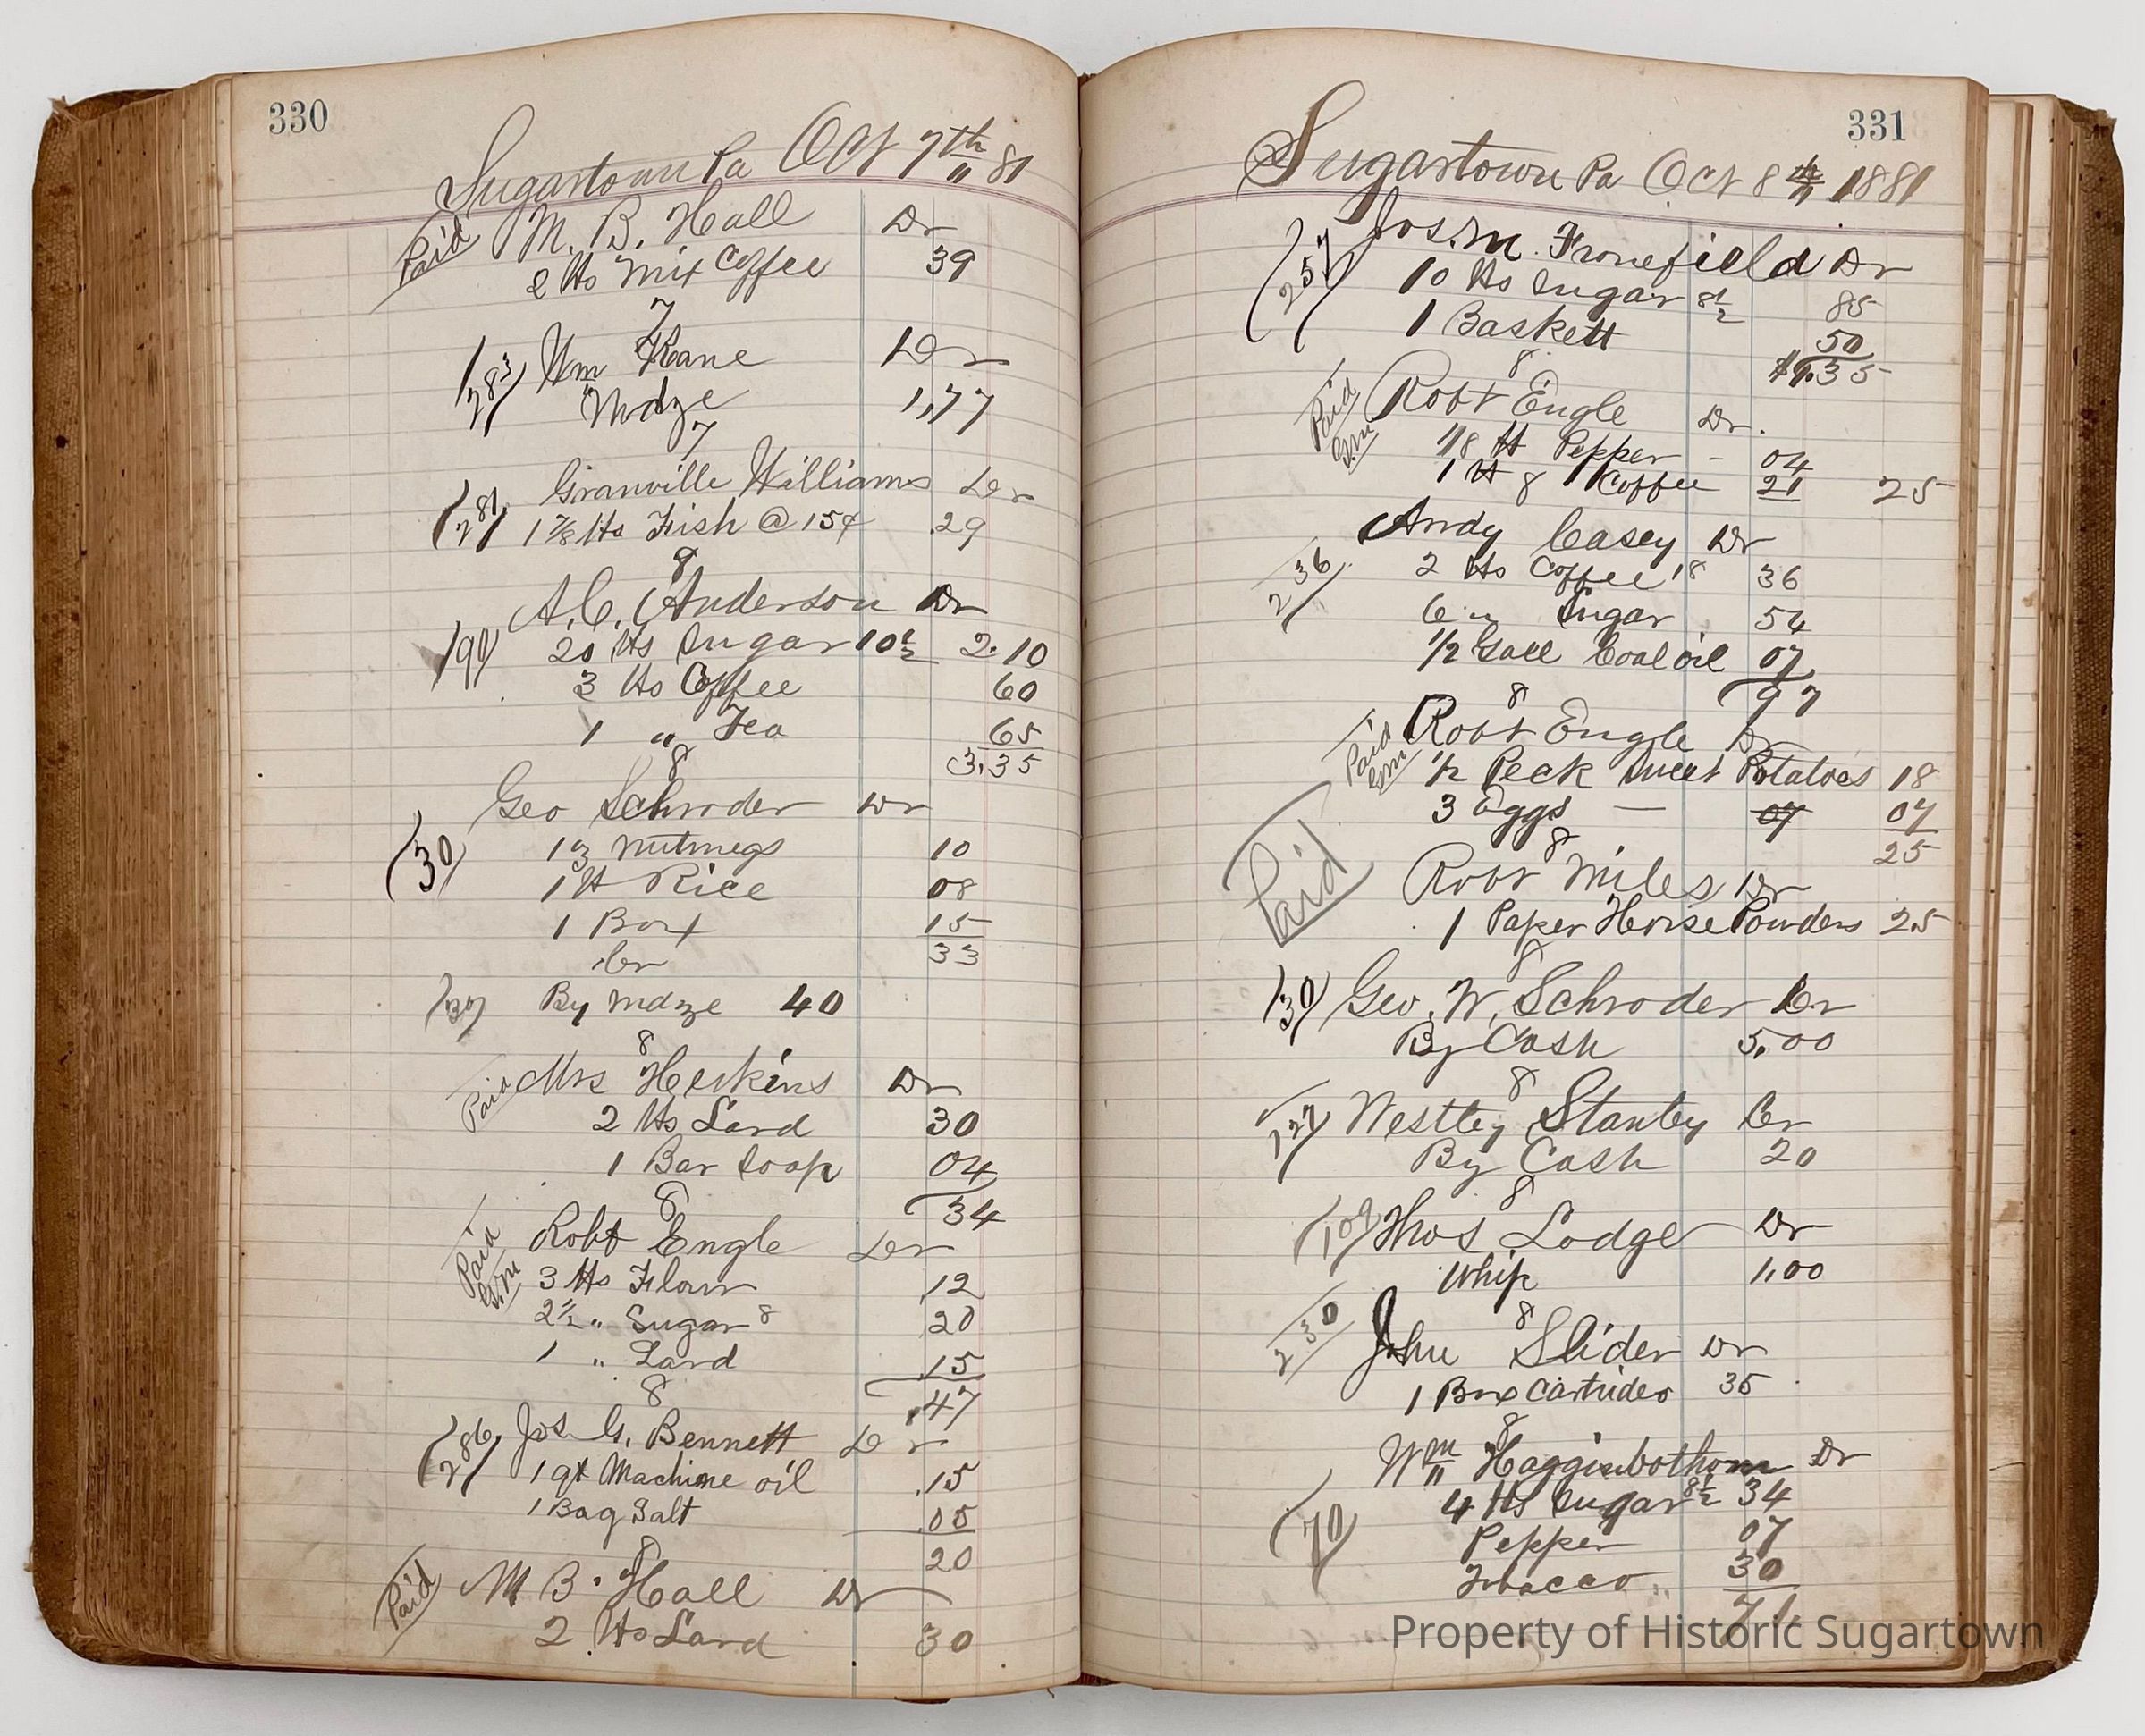 330
Sugartown Pa Oct 7th 81
Paid M. B. Hall Dr
2 lbs Mix Coffee 39
7
283 Wm Kane Dr
Mdze 1,77
7
281 Granville Williams Dr
1 7/8 lbs Fish @ 15¢ 29
8
A. C. Anderson Dr
190 20 lbs Sugar 10½ 2.10
3 lbs Coffee 60
1 " Tea 65
3.35
8
Geo Schroder Dr
30 nutmegs 10
1 lb Rice 08
1 Box 15
33
Cr
30 By Mdze 40
8
Paid Mrs Heskins Dr
2 lbs Lard 30
1 Bar Soap 04
34
8
Paid Robt Engle Dr
3 lbs Flour 12
2½ " Sugar 8 20
1 " Lard 15
47
8
286 Jos G. Bennett Dr
1 qt Machine oil .15
1 Bag Salt .05
20
8
Paid M B. Hall Dr
2 lbs Lard 30
331
Sugartown Pa Oct 8th 1881
257 Jos. M. Fronefield Dr
10 lbs Sugar 8½ 85
1 Baskett 50
$1.35
8
Paid Robt Engle Dr.
1/8 lb Pepper - 04
1 lb Coffee 21 25
8
Andy Casey Dr
236 2 lbs Coffee 18 36
6 " Sugar 54
1/2 Gall Coal oil 07
97
8
Paid Robt Engle Dr
1/2 Peck Sweet Potatoes 18
3 Eggs — 07 07
25
8
Paid Robt Miles Dr
1 Paper Horse Powders 25
8
30 Geo. W. Schroder Cr
By Cash 5,00
8
127 Westley Stanley Cr
By Cash 20
8
109 Thos Lodge Dr
Whip 1,00
8
230 John Slider Dr
1 Box Cartrides 35
8
Wm Hagginbothom Dr
4 lbs Sugar 8½ 34
70 Pepper 07
Tobacco 30
71
Property of Historic Sugartown